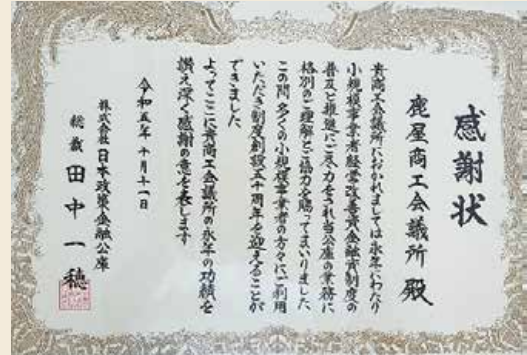 感謝状
鹿屋商工会議所 殿
貴商工会議所におかれましては永年にわたり
小規模事業者経営改善資金融資制度の
普及と推進にご尽力をされ当公庫の業務に
格別のご理解とご協力を賜ってまいりました
この間多くの小規模事業者の方々にご利用
いただき制度創設五十周年を迎えることが
できました
よってここに貴商工会議所の永年の功績を
讃え深く感謝の意を表します
令和五年十月十一日
株式会社日本政策金融公庫
総裁 田中一穂